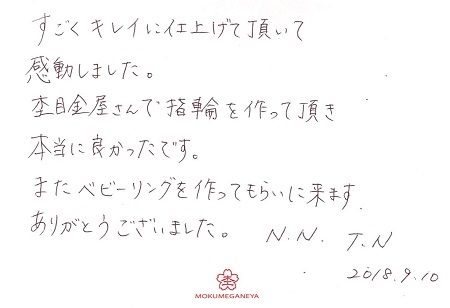 すごくキレイに仕上げて頂いて
感動しました。
杢目金屋さんで指輪を作って頂き
本当に良かったです。
またベビーリングを作ってもらいに来ます.
ありがとうございました。 N.N. T.N
2018.9.10
MOKUMEGANEYA